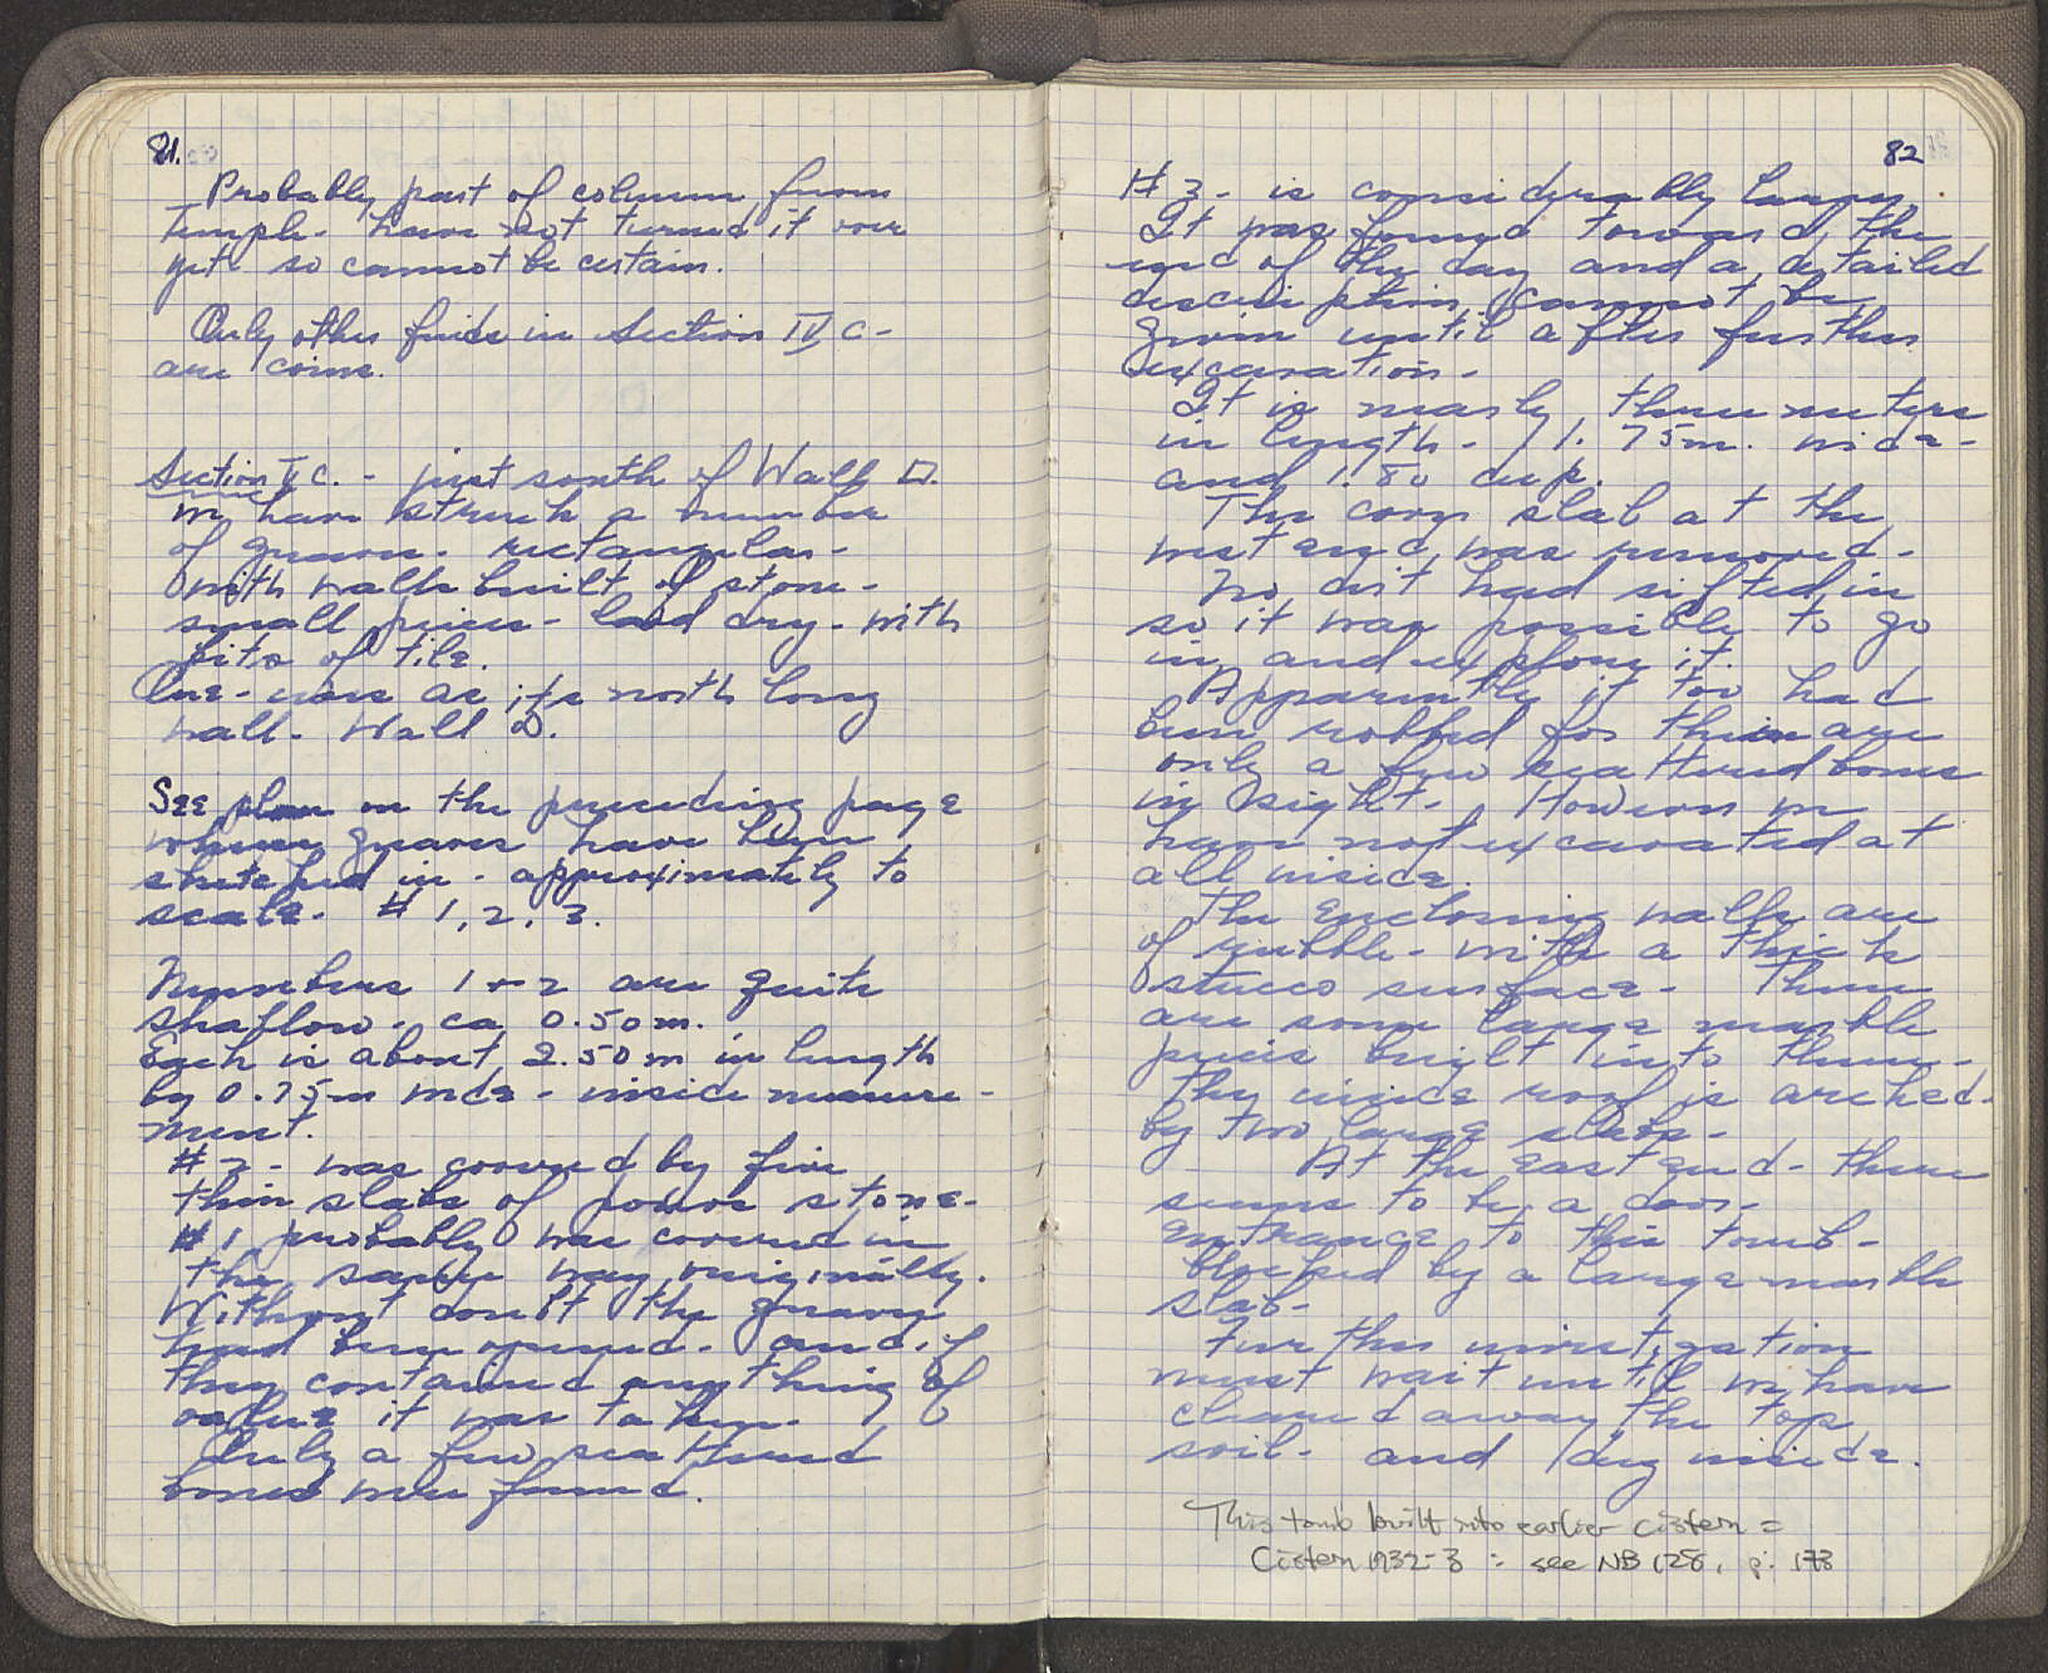 81.
Probably part of column from
Temple. have not turned it over
yet so cannot be certain.
Only other finds in Section IV C -
are coins.
Section V C. - just south of Wall D.
we have struck a number
of graves. rectangular -
with walls built of stone -
small pieces - laid dry - with
bits of tile.
One - uses as its north long
wall - Wall D.
See plan on the preceding page
where graves have been
sketched in - approximately to
scale. # 1, 2, 3.
Numbers 1 + 2 are quite
shallow - ca 0.50 m.
Each is about 2.50 m in length
by 0.75 m wide - inside measure-
ment.
# 2 - was covered by five
thin slabs of poros stone -
# 1 probably was covered in
the same way originally.
Without doubt the graves
had been opened - and if
they contained anything of
value it was taken.
Only a few scattered
bones were found.
82
# 3 - is considerably larger.
It was found toward the
end of the day and a detailed
description cannot be
given until after further
excavation -
It is nearly three meters
in length - 1.75 m. wide -
and 1.80 deep.
The cover slab at the
west end was removed -
No dirt had sifted in
so it was possible to go
in and explore it.
Apparently it too had
been robbed for there are
only a few scattered bones
in sight - However we
have not excavated at
all inside.
The enclosing walls are
of rubble - with a thick
stucco surface - There
are some large marble
pieces built into them -
The inside roof is arched
by two large slabs -
At the east end - there
seems to be a door -
entrance to this tomb -
blocked by a large marble
slab -
Further investigation
must wait until we have
cleared away the top
soil - and dug inside.
This tomb built into earlier cistern =
Cistern 1932-3 : see NB 128, p. 173